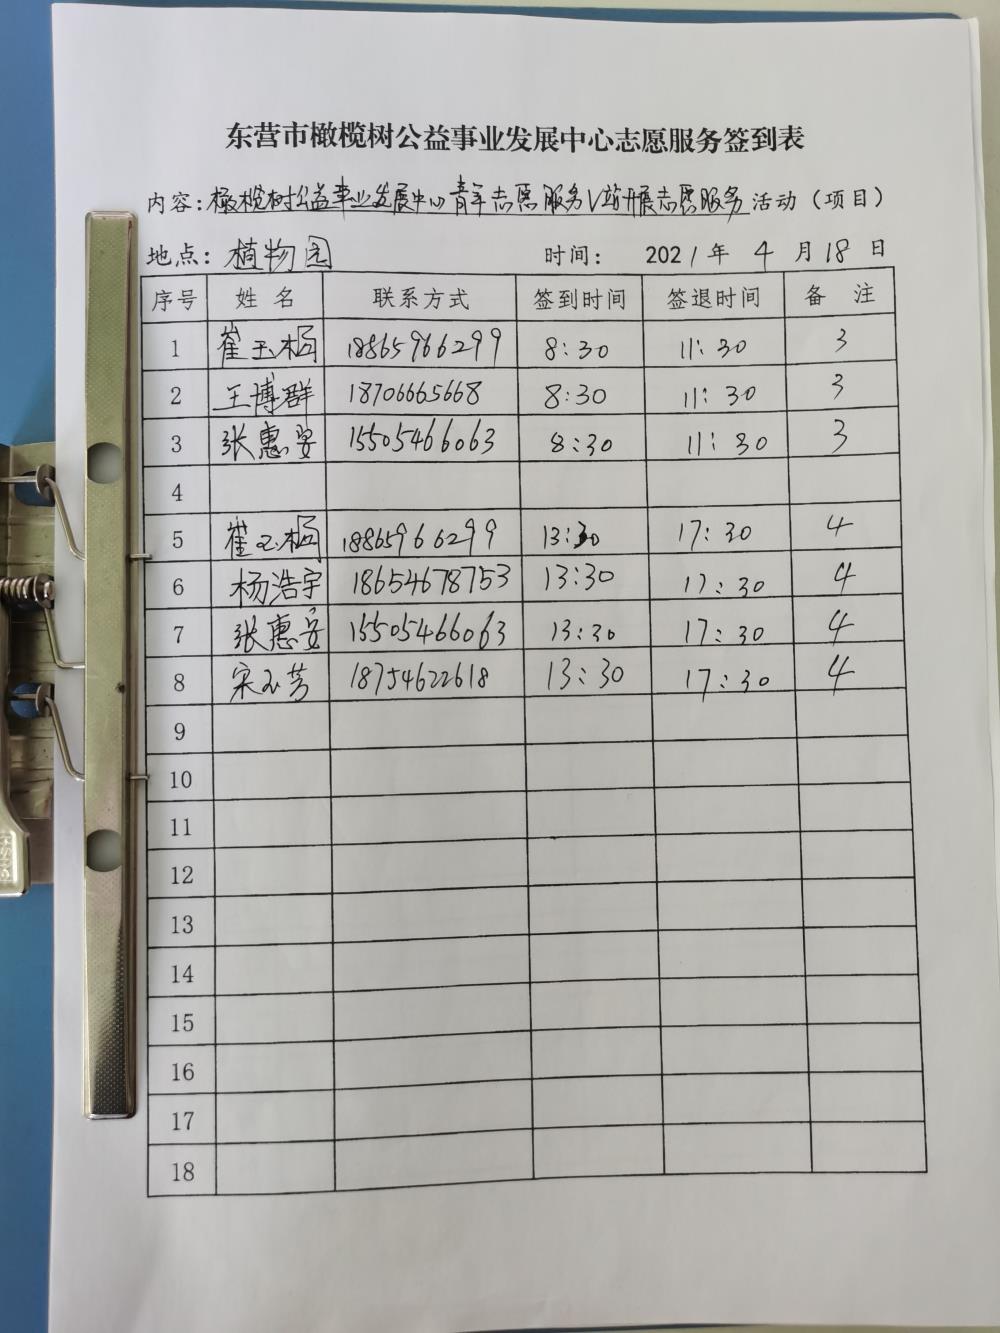 东营市橄榄树公益事业发展中心志愿服务签到表
内容：橄榄树公益事业发展中心青年志愿服务V站开展志愿服务活动（项目）
地点：植物园 时间： 2021年 4 月 18 日
序号 姓 名 联系方式 签到时间 签退时间 备 注
1 崔玉 18865966299 8:30 11:30 3
2 王博群 18706665668 8:30 11:30 3
3 张惠 15505466063 8:30 11:30 3
4
5 崔玉 18865966299 13:30 17:30 4
6 杨浩宇 18654678753 13:30 17:30 4
7 张惠 15505466063 13:30 17:30 4
8 宋玉芳 18754622618 13:30 17:30 4
9
10
11
12
13
14
15
16
17
18